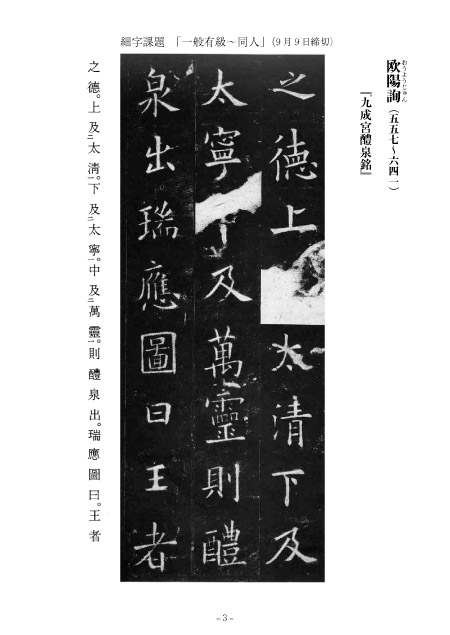 細字課題 「一般有級～同人」(9月9日締切)
欧陽詢(五五七～六四一)
おうようじゅん
『九成宮醴泉銘』
之德上 太清下及
太寧 及萬靈則醴
泉出瑞應圖曰王者
之德。上及二太淸一。下及二太寧一。中及二萬靈一。則醴泉出。瑞應圖曰。王者
-3-